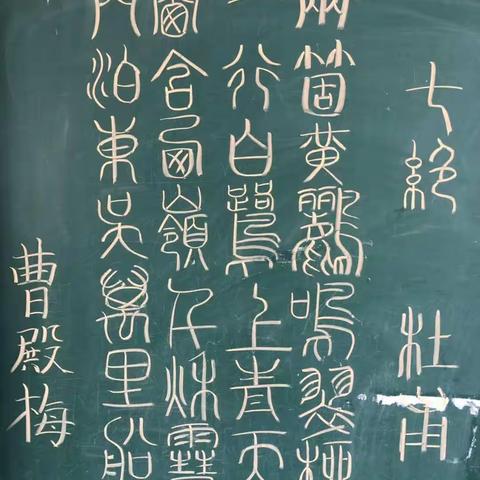 七絕 杜甫
兩箇黃鸝鳴翠柳
一行白鷺上青天
窗含西嶺千秋雪
門泊東吳萬里船
曹殿梅